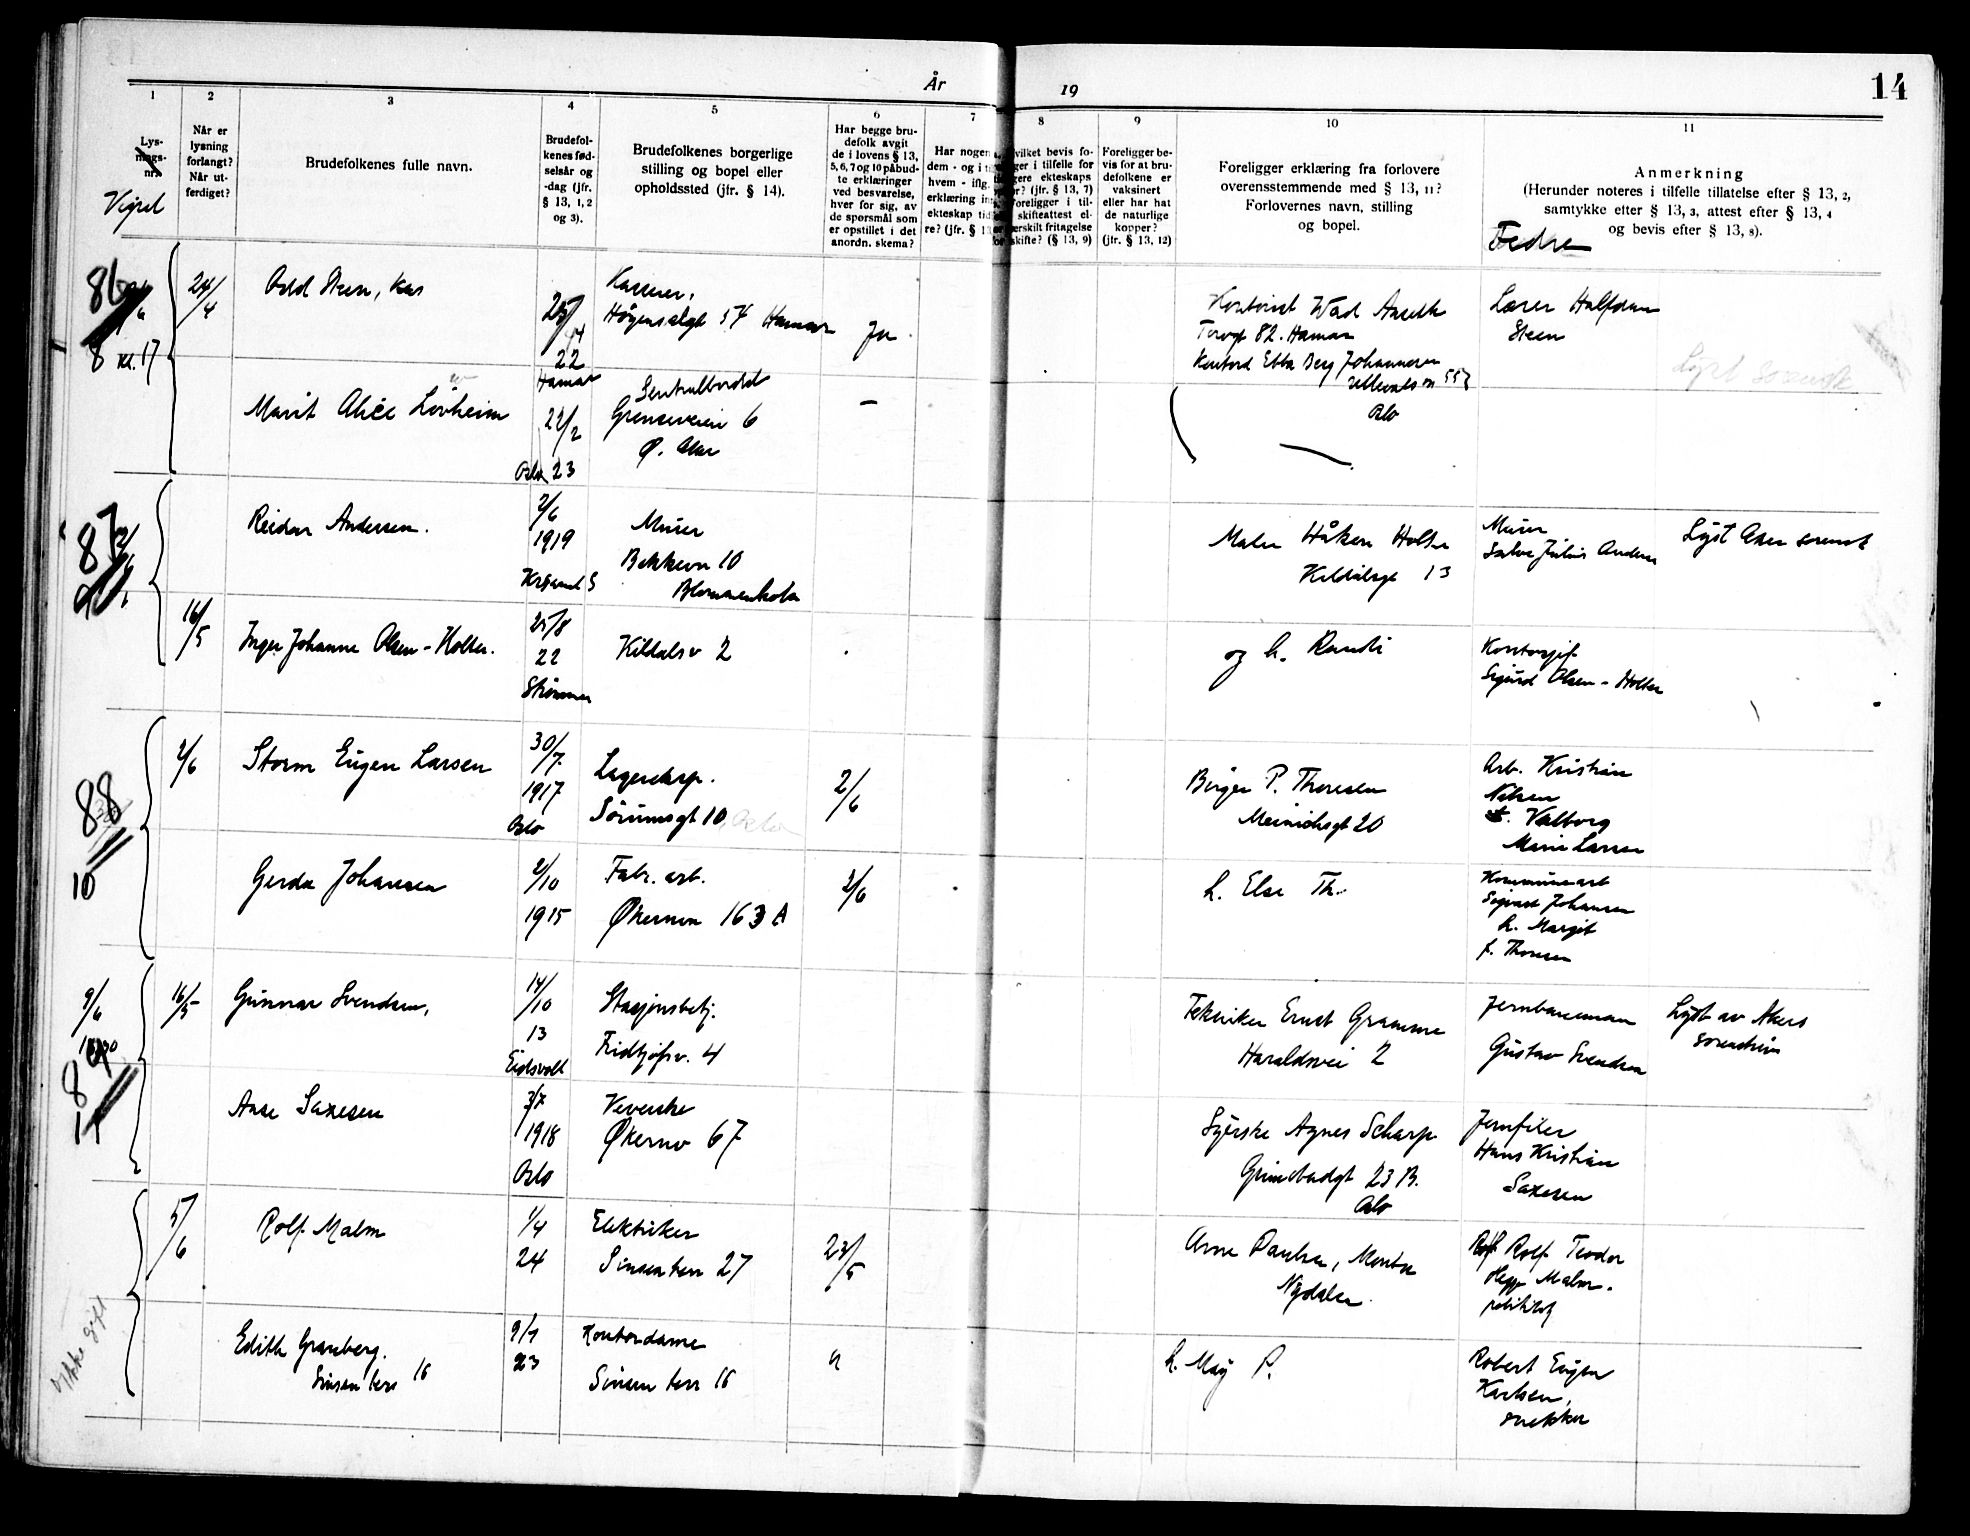 År 19
14
1 2 3 4 5 6 7 8 9 10 11
Lys-
nings-
nr.
Viget
Når er
lysning
forlangt?
Når ut-
ferdiget?
Brudefolkenes fulle navn.
Brudefol-
kenes fød-
selsår og
-dag (jfr.
§ 13, 1, 2
og 3).
Brudefolkenes borgerlige
stilling og bopel eller
opholdssted (jfr. § 14).
Har begge bru-
defolk avgit
de i lovens § 13,
5, 6, 7 og 10 påbud-
te erklæringer
ved besvarelse,
hver for sig, av
de spørsmål som
er opstillet i det
anordn. skema?
Har nogen
dem - og i
hvem - iflg.
erklæring in
ekteskap tid
re? (jfr. § 13
vilket bevis fo-
ger i tilfelle for
gere ekteskaps
r? (jfr. § 13, 7)
Foreligger i til-
skifteattest el-
ærskilt fritagelse
skifte? (§ 13, 9)
Foreligger be-
vis for at bru-
defolkene er
vaksinert
eller har hat
de naturlige
kopper?
(jfr. § 13, 12)
Foreligger erklæring fra forlovere
overensstemmende med § 13, 11?
Forlovernes navn, stilling
og bopel.
Anmerkning
(Herunder noteres i tilfelle tillatelse efter § 13, 2,
samtykke efter § 13, 3, attest efter § 13, 4
og bevis efter § 13, 8).
Fedre
86
8 kl. 17
24/4
Odd Steen,
22
Hamar
Kasserer,
54 Hamar
Ja
82. Hamar
Ebba Berg Johannesen
Oslo
Lærer Halfdan
Steen
Lyst sorensk
Marit Alice Lövheim
22/2
Oslo 23
Sentralbord
Grenseveien 6
Ø. Aker
—
87
Reidar Andersen.
2/6
1919
Murer
Bekkevn 10
Blommenholm
Maler Håkon Holter
13
Murer
Julius Andersen
Lyst Aker sorensk
16/5
Inger Johanne Olsen - Holter.
25/8
22
Strømmen
Kildalsv 2
og h. Randi
Sigurd Olsen - Holter
88
10
2/6
Storm Eugen Larsen
30/7
1917
Oslo
Lagereksp.
Sörumsgt 10, Oslo
2/6
Birger P. Thoresen
Meinichsgt 20
Arb. Kristian
Nilsen
Valborg
Marie Larsen
Gerda Johansen
2/10
1915
Fabr. arb.
Økernvn 163 A
2/6
h. Else Th.
Kommunearb
Sigurd Johansen
h. Margit
f. Thoresen
9/6
89
11
16/5
Gunnar Svendsen,
14/10
13
Eidsvoll
Stasjonsbetj.
Fridtjofsv. 4
Tekniker Ernst Gramme
Haraldsvei 2
Jernbanemann
Gustav Svendsen
Lyst av Akers
Aase Saxesen
1918
Oslo
Veverske
Økernv 67
Syerske Agnes Scharp
Grimstadgt 23 B.
Oslo
Jernfiler
Hans Kristian
Saxesen
5/6
Ikke gift
Rolf Malm
1/4
24
Elektriker
Sinsen terr 27
23/5
Arne Paulsen, Montør
Nydalen
Rolf Teodor
Malm.
Edith Granberg.
Sinsen terr 16
9/1
23
Kontordame
Sinsen terr 16
"
h. May P.
Robert Eugen
Karlsen,
snekker